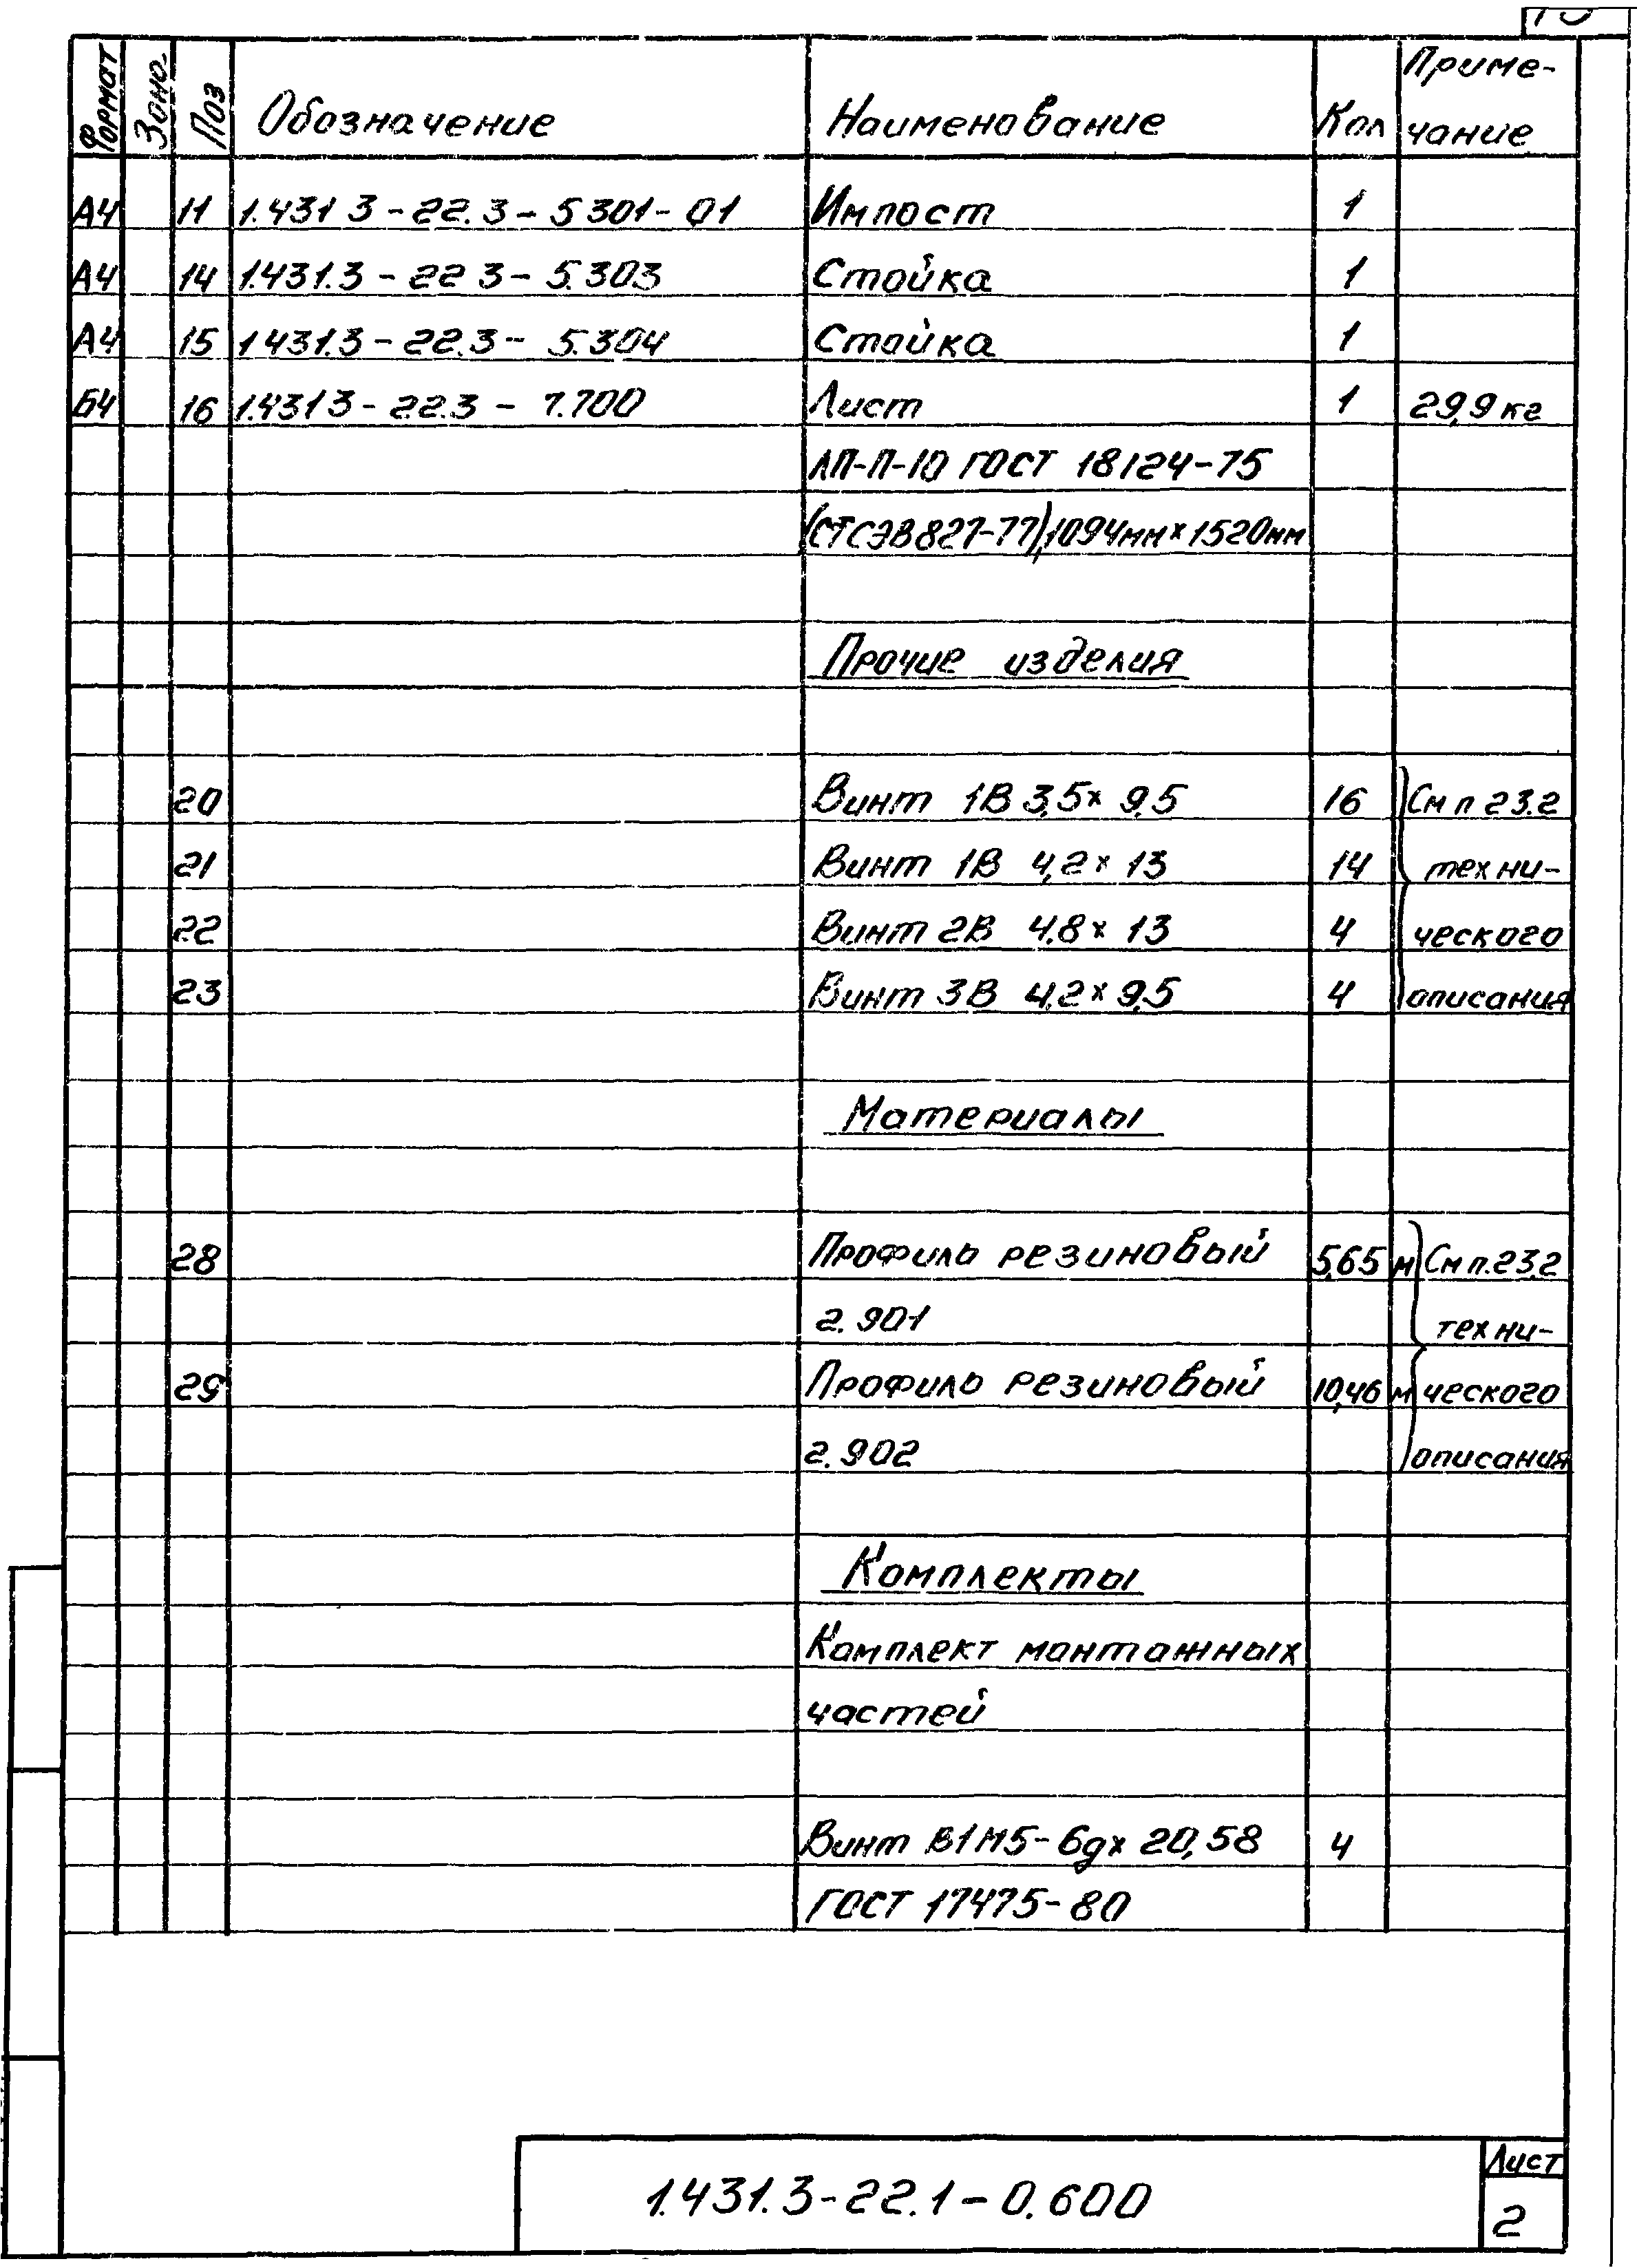 Формат Зона Поз Обозначение Наименование Кол Приме-
чание
А4 11 1.431 3-22.3-5 301-01 Импост 1
А4 14 1.431.3-22 3-5.303 Стойка 1
А4 15 1 431.3-22.3-5.304 Стойка 1
Б4 16 1.431 3-22.3-7.700 Лист 1 29,9 кг
ЛП-П-10 ГОСТ 18124-75
(СТ СЭВ 827-77), 1094мм×1520мм
Прочие изделия
20 Винт 1В 3,5× 9,5 16 См п 23.2
21 Винт 1В 4,2× 13 14 техни-
22 Винт 2В 4.8× 13 4 ческого
23 Винт 3В 4.2× 9,5 4 описания
Материалы
28 Профиль резиновый 5,65 м См п.23.2
г. 901 техни-
29 Профиль резиновый 10,46 м ческого
г. 902 описания
Комплекты
Комплект монтажных
частей
Винт В1М5-6gх 20,58 4
ГОСТ 17475-80
1.431.3-22.1-0.600 Лист
2